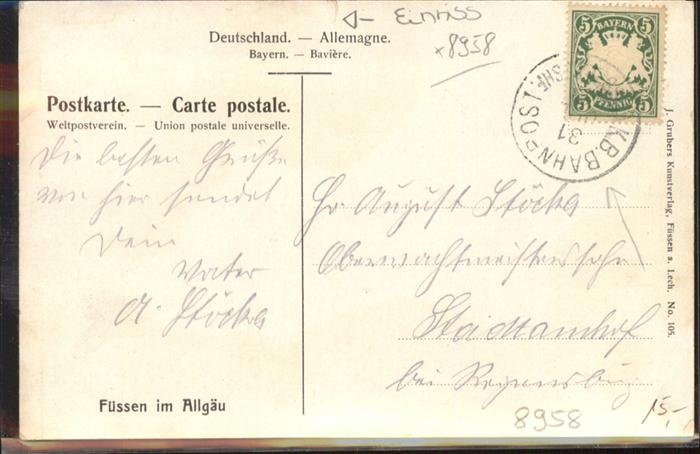 Einriss
x8958
Deutschland. — Allemagne.
Bayern. — Bavière.
Postkarte. — Carte postale.
Weltpostverein. — Union postale universelle.
BAYERN
5 5
5 5
PFENNIG
K.B.BAHNPOST
31
Die besten Grüße
von hier sendet
Dein
Vater
A. Stöcks
Hr August Stöcks
Oberwachtmeisterssohn
Stadtamhof
bei Regensburg
J. Grubers Kunstverlag, Füssen a. Lech. No. 105.
Füssen im Allgäu
8958
15,-